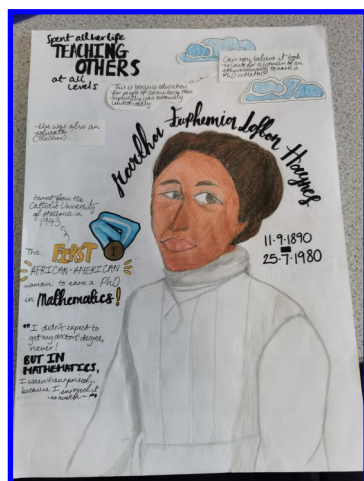 Spent all her life
TEACHING
OTHERS
at all
levels
Can you believe it took
for a woman of an
to earn a
PhD in Maths?
This is because education
for people of colour
was
- she was also an
educator
Martha Euphemia Lofton Haynes
Earnt from the
Catholic University
of America in
1943
The FIRST
1
AFRICAN-AMERICAN
woman to earn a PhD
in Mathematics!
11.9.1890
25.7.1980
"I didn't expect to
get my doctor's degree,
never!
BUT IN
MATHEMATICS,
I wasn't surprised,
because I enjoyed it
so much - "